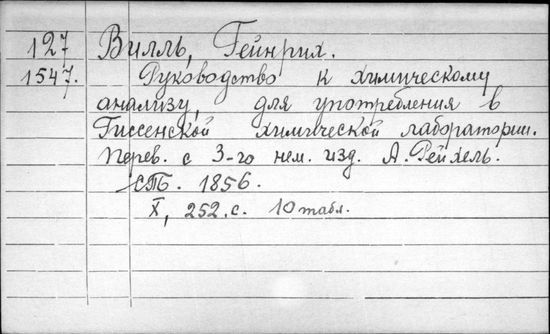 127 Вилль, Гейнрих.
1547. Руководство к химическому
анализу, для употребления в
Гиссенской химической лаборатории.
Перев. с 3-го нем. изд. А. Рейхель.
СПб. 1856.
X, 252.с. 10 табл.